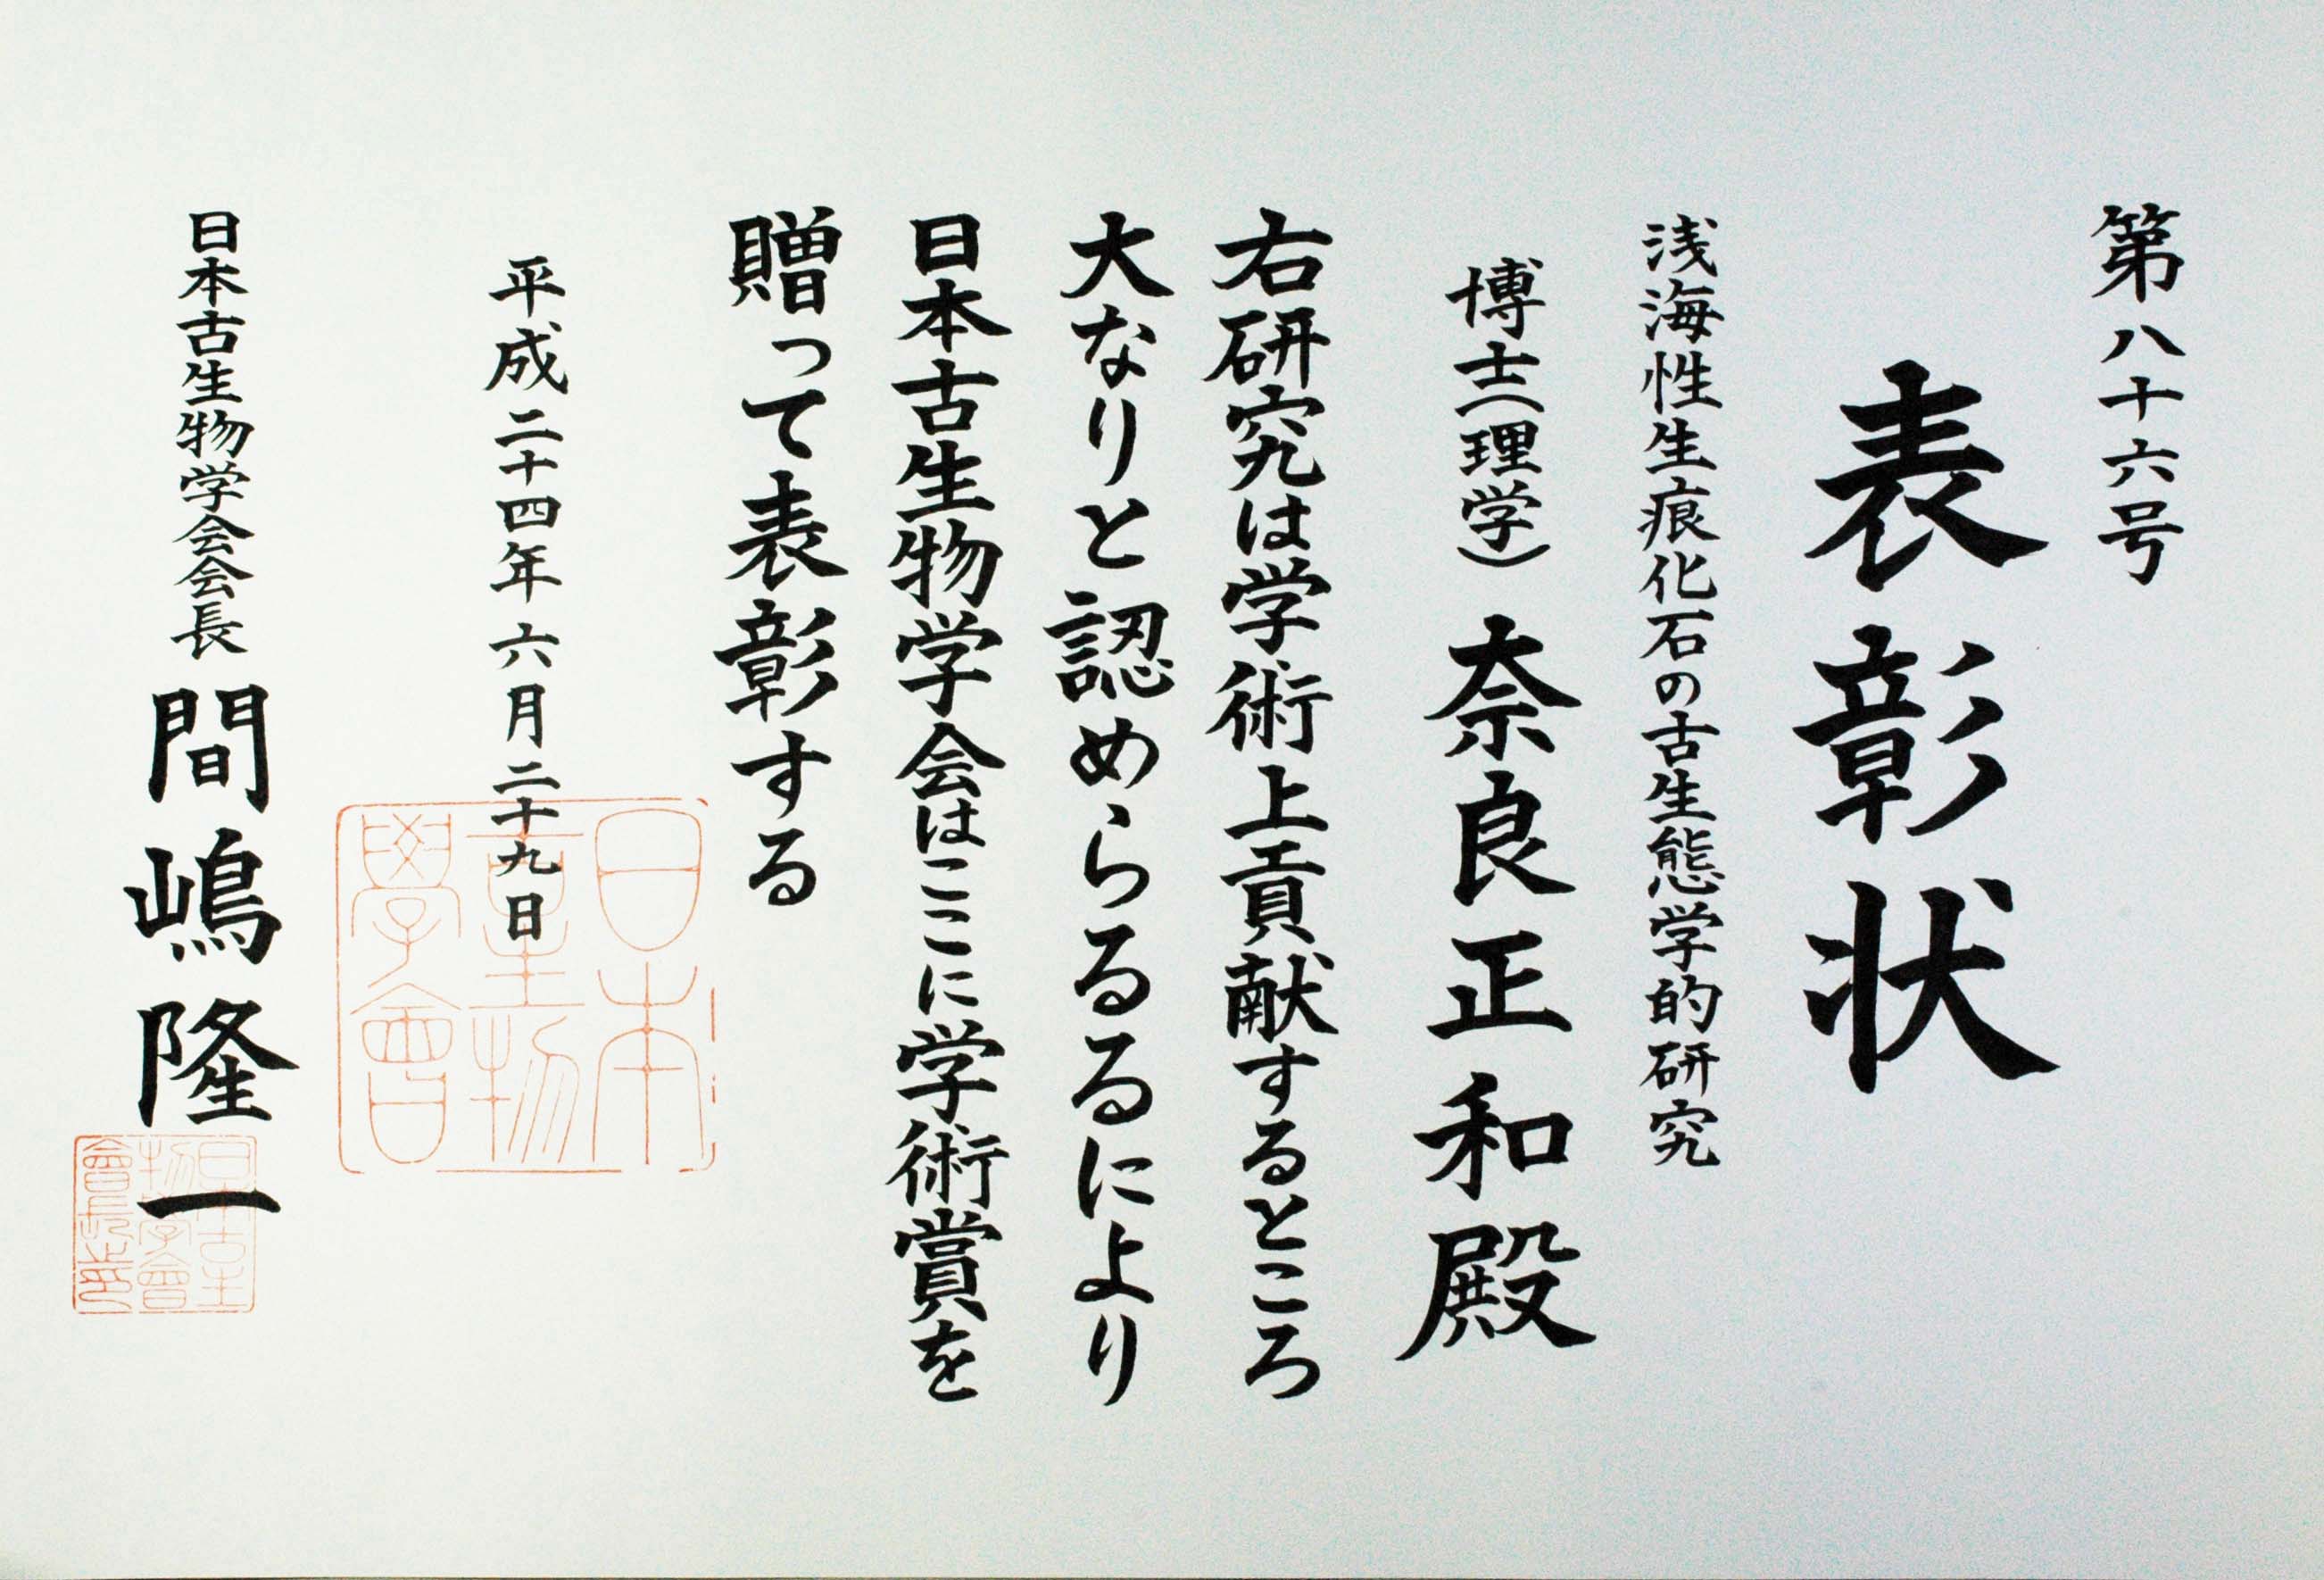 第八十六号
表彰状
浅海性生痕化石の古生態学的研究
博士(理学) 奈良正和殿
右研究は学術上貢献するところ
大なりと認めらるるにより
日本古生物学会はここに学術賞を
贈って表彰する
平成二十四年六月二十九日
日本古生物学会会長 間嶋隆一